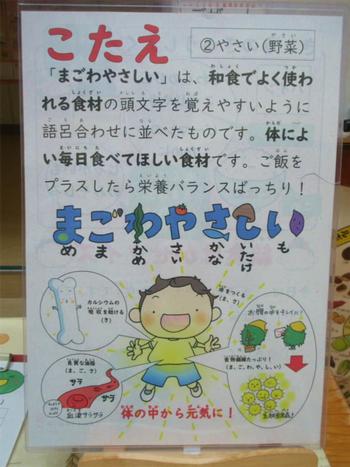 こたえ
②やさい(野菜)
「まごわやさしい」は、和食でよく使わ
れる食材の頭文字を覚えやすいように
語呂合わせに並べたものです。体によ
い毎日食べてほしい食材です。ご飯を
プラスしたら栄養バランスばっちり！
まごわやさしい
め ま かめ さい かな いたけ も
カルシウムの
吸収を助ける
(さ)
体をつくる
(ま、さ)
お腹の中をキレイに！
良質な油脂
(ま、ご、さ)
サラ
サラ
血液サラサラ
食物繊維たっぷり！
(ま、ご、わ、や、し、い)
体の中から元気に！